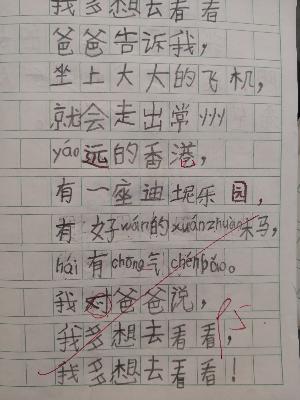 我多想去看看
爸爸告诉我，
坐上大大的飞机，
就会走出常州
yáo远的香港，
有一座迪士尼乐园，
有好wán的xuánzhuàn木马，
hái有chōng气chénbǎo。
我对爸爸说，
我多想去看看，
我多想去看看！